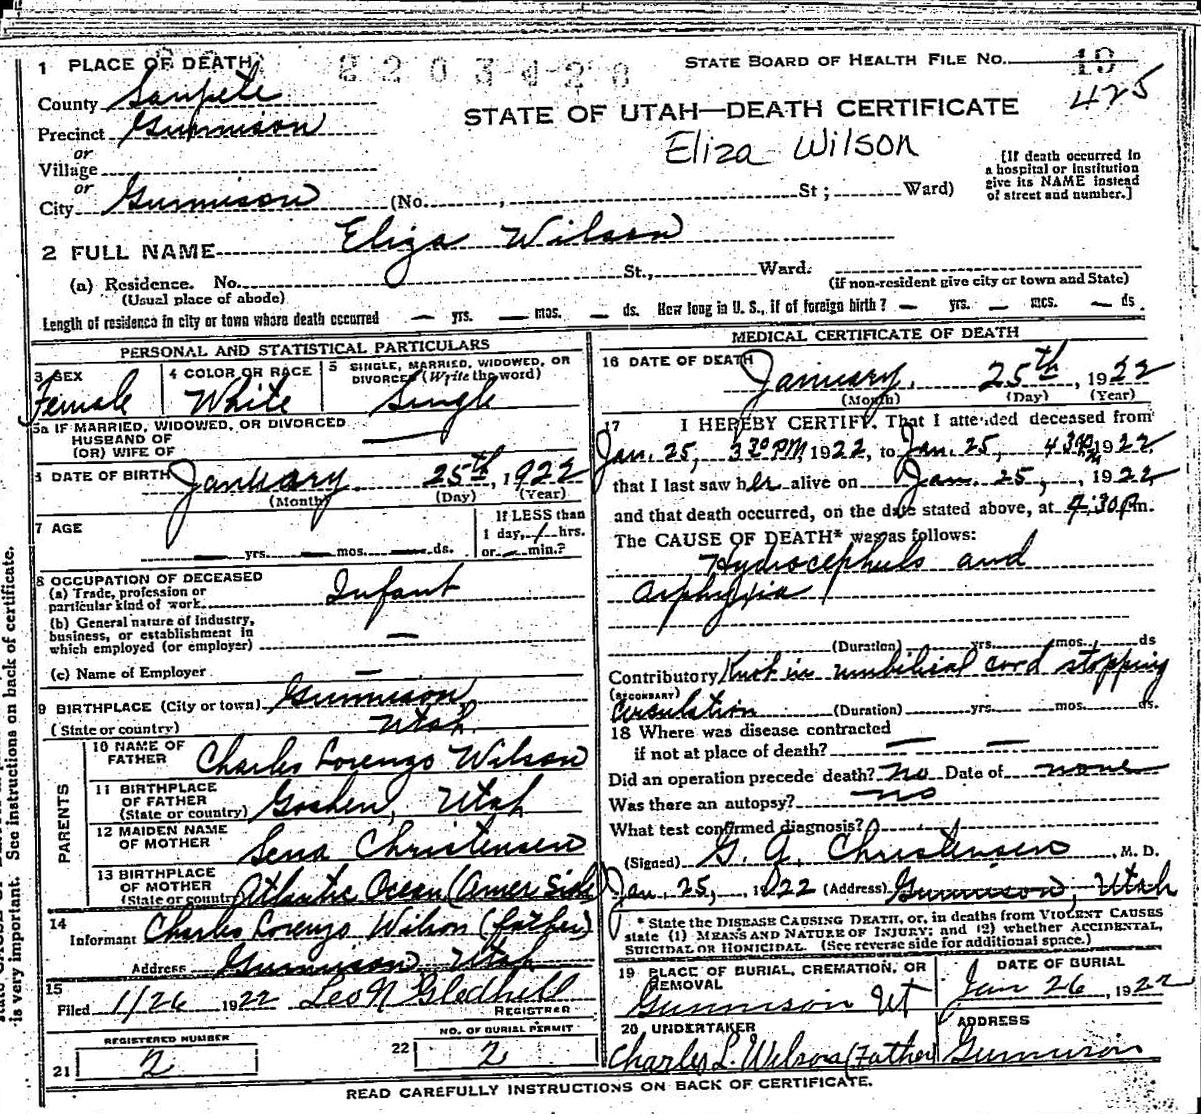 1 PLACE OF DEATH
2203420
STATE BOARD OF HEALTH FILE NO. 19
425
County Sanpete
STATE OF UTAH—DEATH CERTIFICATE
Precinct Gunnison
Eliza Wilson
or
Village
or
City Gunnison (No. , St ; Ward)
[If death occurred in
a hospital or institution
give its NAME instead
of street and number.]
2 FULL NAME Eliza Wilson
(a) Residence. No. St., Ward.
(Usual place of abode)
(if non-resident give city or town and State)
Length of residence in city or town where death occurred — yrs. — mos. — ds. How long in U. S., if of foreign birth? — yrs. — mos. — ds
PERSONAL AND STATISTICAL PARTICULARS
3 SEX
Female
4 COLOR OR RACE
White
5 SINGLE, MARRIED, WIDOWED, OR
DIVORCED (Write the word)
Single
5a IF MARRIED, WIDOWED, OR DIVORCED
HUSBAND OF
(OR) WIFE OF —
DATE OF BIRTH January 25th, 1922
(Month) (Day) (Year)
7 AGE
— yrs. — mos. — ds.
If LESS than
1 day, 1 hrs.
or — min.?
8 OCCUPATION OF DECEASED
(a) Trade, profession or
particular kind of work Infant
(b) General nature of industry,
business, or establishment in
which employed (or employer) —
(c) Name of Employer —
9 BIRTHPLACE (City or town) Gunnison
(State or country) Utah
PARENTS
10 NAME OF
FATHER Charles Lorenzo Wilson
11 BIRTHPLACE
OF FATHER
(State or country) Goshen, Utah
12 MAIDEN NAME
OF MOTHER Sena Christensen
13 BIRTHPLACE
OF MOTHER
(State or country) Atlantic Ocean (Amer Side
14
Informant Charles Lorenzo Wilson (father)
Address Gunnison Utah
15
Filed 1/26 1922 Leo N Gledhill
REGISTRER
REGISTERED NUMBER
21 2
NO. OF BURIAL PERMIT
22 2
MEDICAL CERTIFICATE OF DEATH
16 DATE OF DEATH
January. 25th, 1922
(Month) (Day) (Year)
17 I HEREBY CERTIFY. That I attended deceased from
Jan. 25, 3 30 PM, 1922, to Jan. 25, 4 30 PM 1922,
that I last saw her alive on Jan. 25, , 1922
and that death occurred, on the date stated above, at 4:30 Pm.
The CAUSE OF DEATH* was as follows:
Hydrocephuls and
asphyxia
(Duration) yrs. mos. ds
Contributory Knot in umbilial cord stopping
(SECONDARY)
circulation (Duration) yrs. mos. ds.
18 Where was disease contracted
if not at place of death? — —
Did an operation precede death? no Date of none
Was there an autopsy? no
What test confirmed diagnosis?
(Signed) G. A. Christensen, M. D.
Jan. 25, , 1922 (Address) Gunnison, Utah
* State the DISEASE CAUSING DEATH, or, in deaths from VIOLENT CAUSES
state (1) MEANS AND NATURE OF INJURY; and (2) whether ACCIDENTAL,
SUICIDAL OR HONICIDAL. (See reverse side for additional space.)
19 PLACE OF BURIAL, CREMATION, OR
REMOVAL
Gunnison Ut
DATE OF BURIAL
Jan 26, 1922
20 UNDERTAKER
Charles L. Wilson (Father)
ADDRESS
Gunnison
READ CAREFULLY INSTRUCTIONS ON BACK OF CERTIFICATE.
is very important. See instructions on back of certificate.